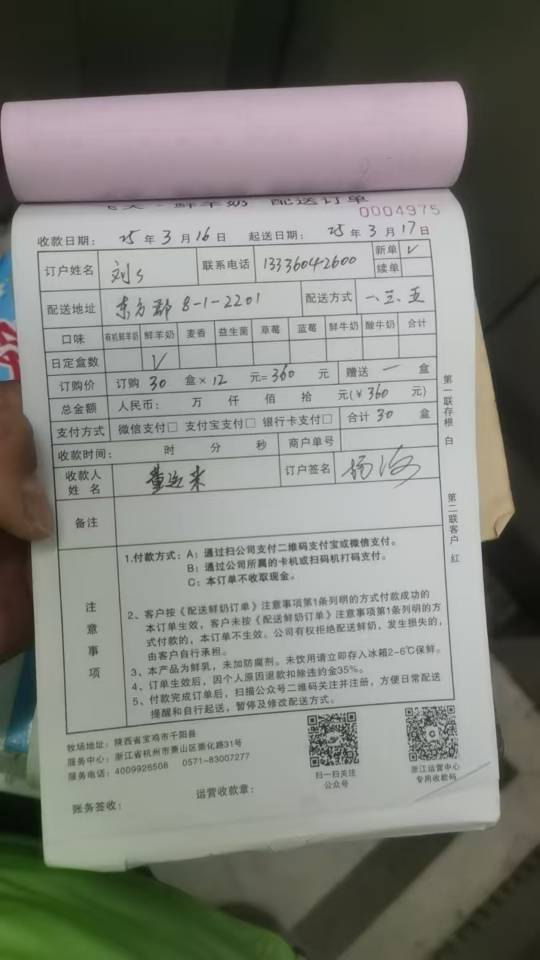 鲜羊奶 配送订单
0004975
收款日期： 25 年 3 月 16 日 起送日期： 25 年 3 月 17 日
订户姓名 刘 联系电话 13336042600 新单 √
续单
配送地址 东方郡 8-1-2201 配送方式 一.三.五
口味 有机鲜羊奶 鲜羊奶 麦香 益生菌 草莓 蓝莓 鲜牛奶 酸牛奶 合计
日定盒数 √
订购价 订购 30 盒 × 12 元= 360 元 赠送 一 盒
总金额 人民币： 万 仟 佰 拾 元(￥ 360 元)
支付方式 微信支付□ 支付宝支付□ 银行卡支付□ 合计 30 盒
收款时间： 时 分 秒 商户单号
收款人姓名 订户签名
备注
注意事项
1.付款方式：A：通过扫公司支付二维码支付宝或微信支付。
B：通过公司所属的卡机或扫码机打码支付。
C：本订单不收取现金。
2、客户按《配送鲜奶订单》注意事项第1条列明的方式付款成功的
本订单生效，客户未按《配送鲜奶订单》注意事项第1条列明的方
式付款的，本订单不生效。公司有权拒绝配送鲜奶，发生损失的，
由客户自行承担。
3、本产品为鲜乳，未加防腐剂。未饮用请立即存入冰箱2-6℃保鲜。
4、订单生效后，因个人原因退款扣除违约金35%。
5、付款完成订单后，扫描公众号二维码关注并注册，方便日常配送
提醒和自行起送，暂停及修改配送方式。
第一联存根 白
第二联客户 红
牧场地址：陕西省宝鸡市千阳县
服务中心：浙江省杭州市萧山区崇化路31号
服务电话：4009926508 0571-83007277
扫一扫关注
公众号
浙江运营中心
专用收款码
账务签收： 运营收款章：